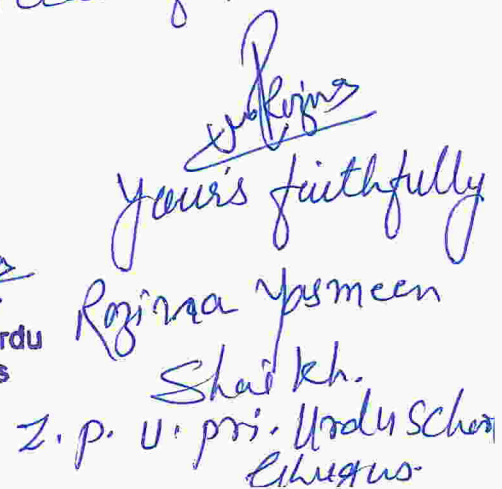 Your's faithfully
Rozina Yasmeen
rdu
Shaikh.
s
Z. p. U. pri. Urdu School
Ghugus.